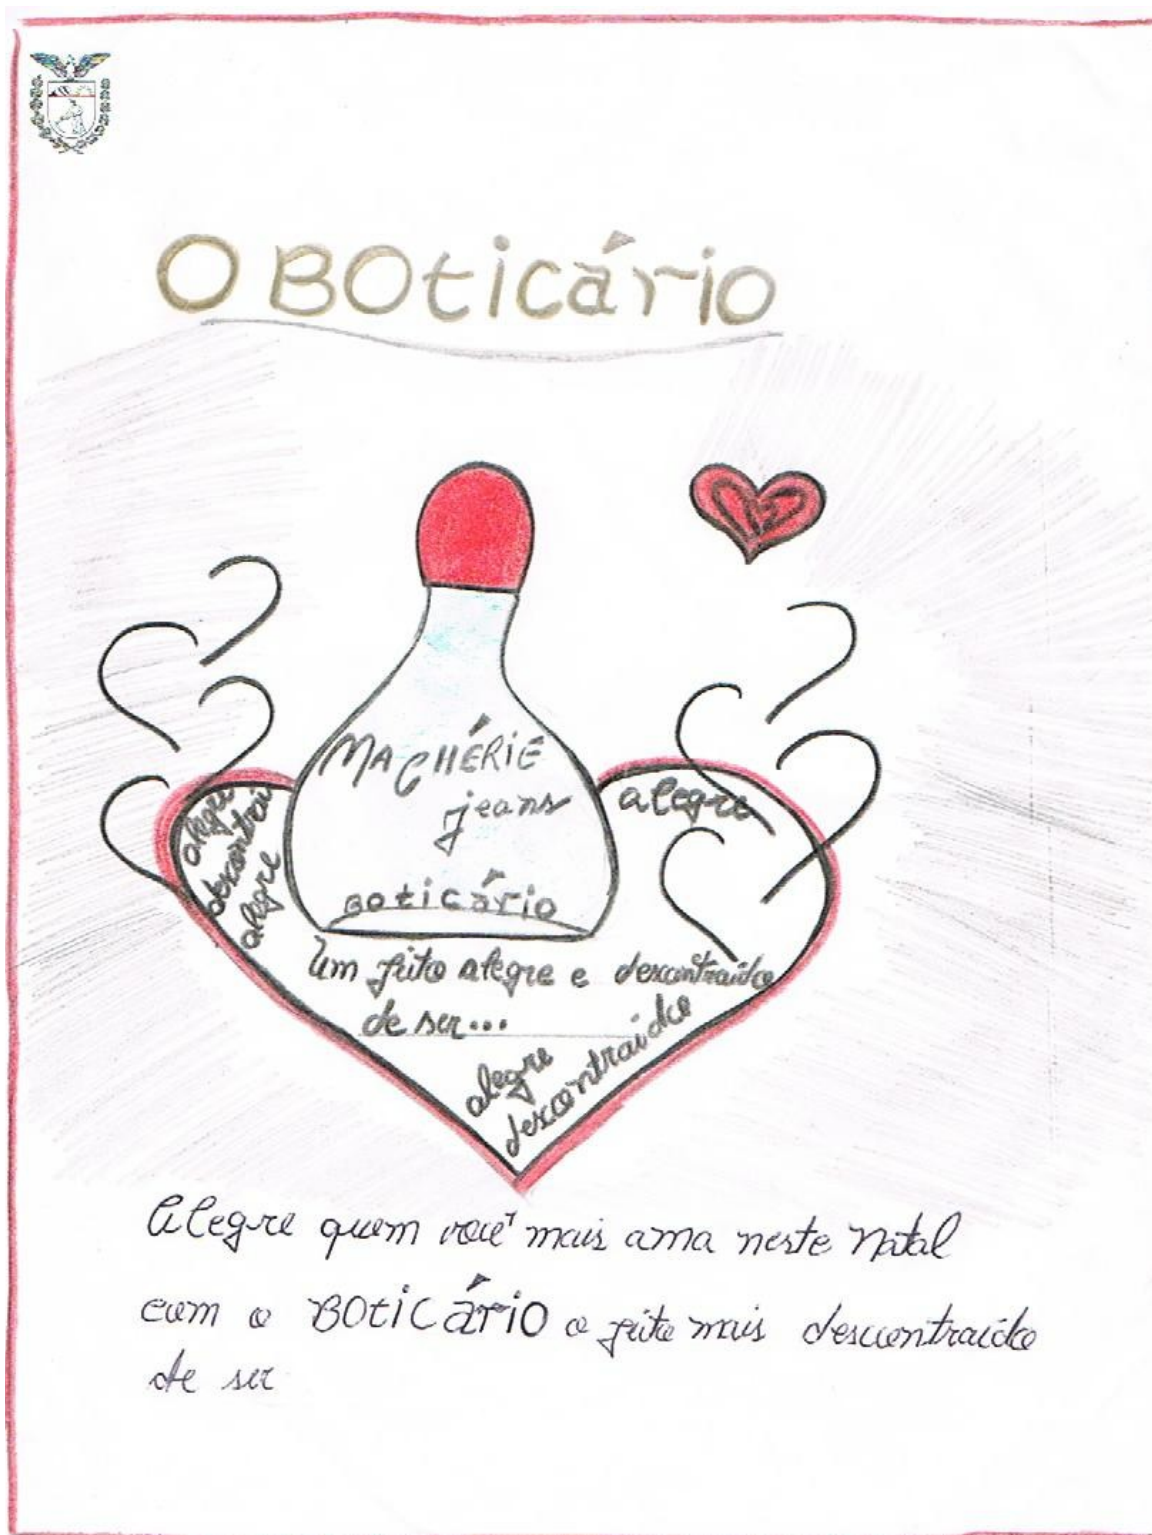 O BOticário
MACHÉRIE
jeans
BOticário
alegre
descontrai
alegre
alegre
Um jeito alegre e descontraido
de ser...
alegre
descontraido
Alegre quem você mais ama neste Natal
com o BOticário o jeito mais descontraido
de ser